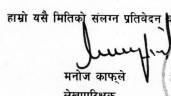 हाम्रो यसै मितिको संलग्न प्रतिवेदन
मनोज काफ्ले
लेखापरिक्षक